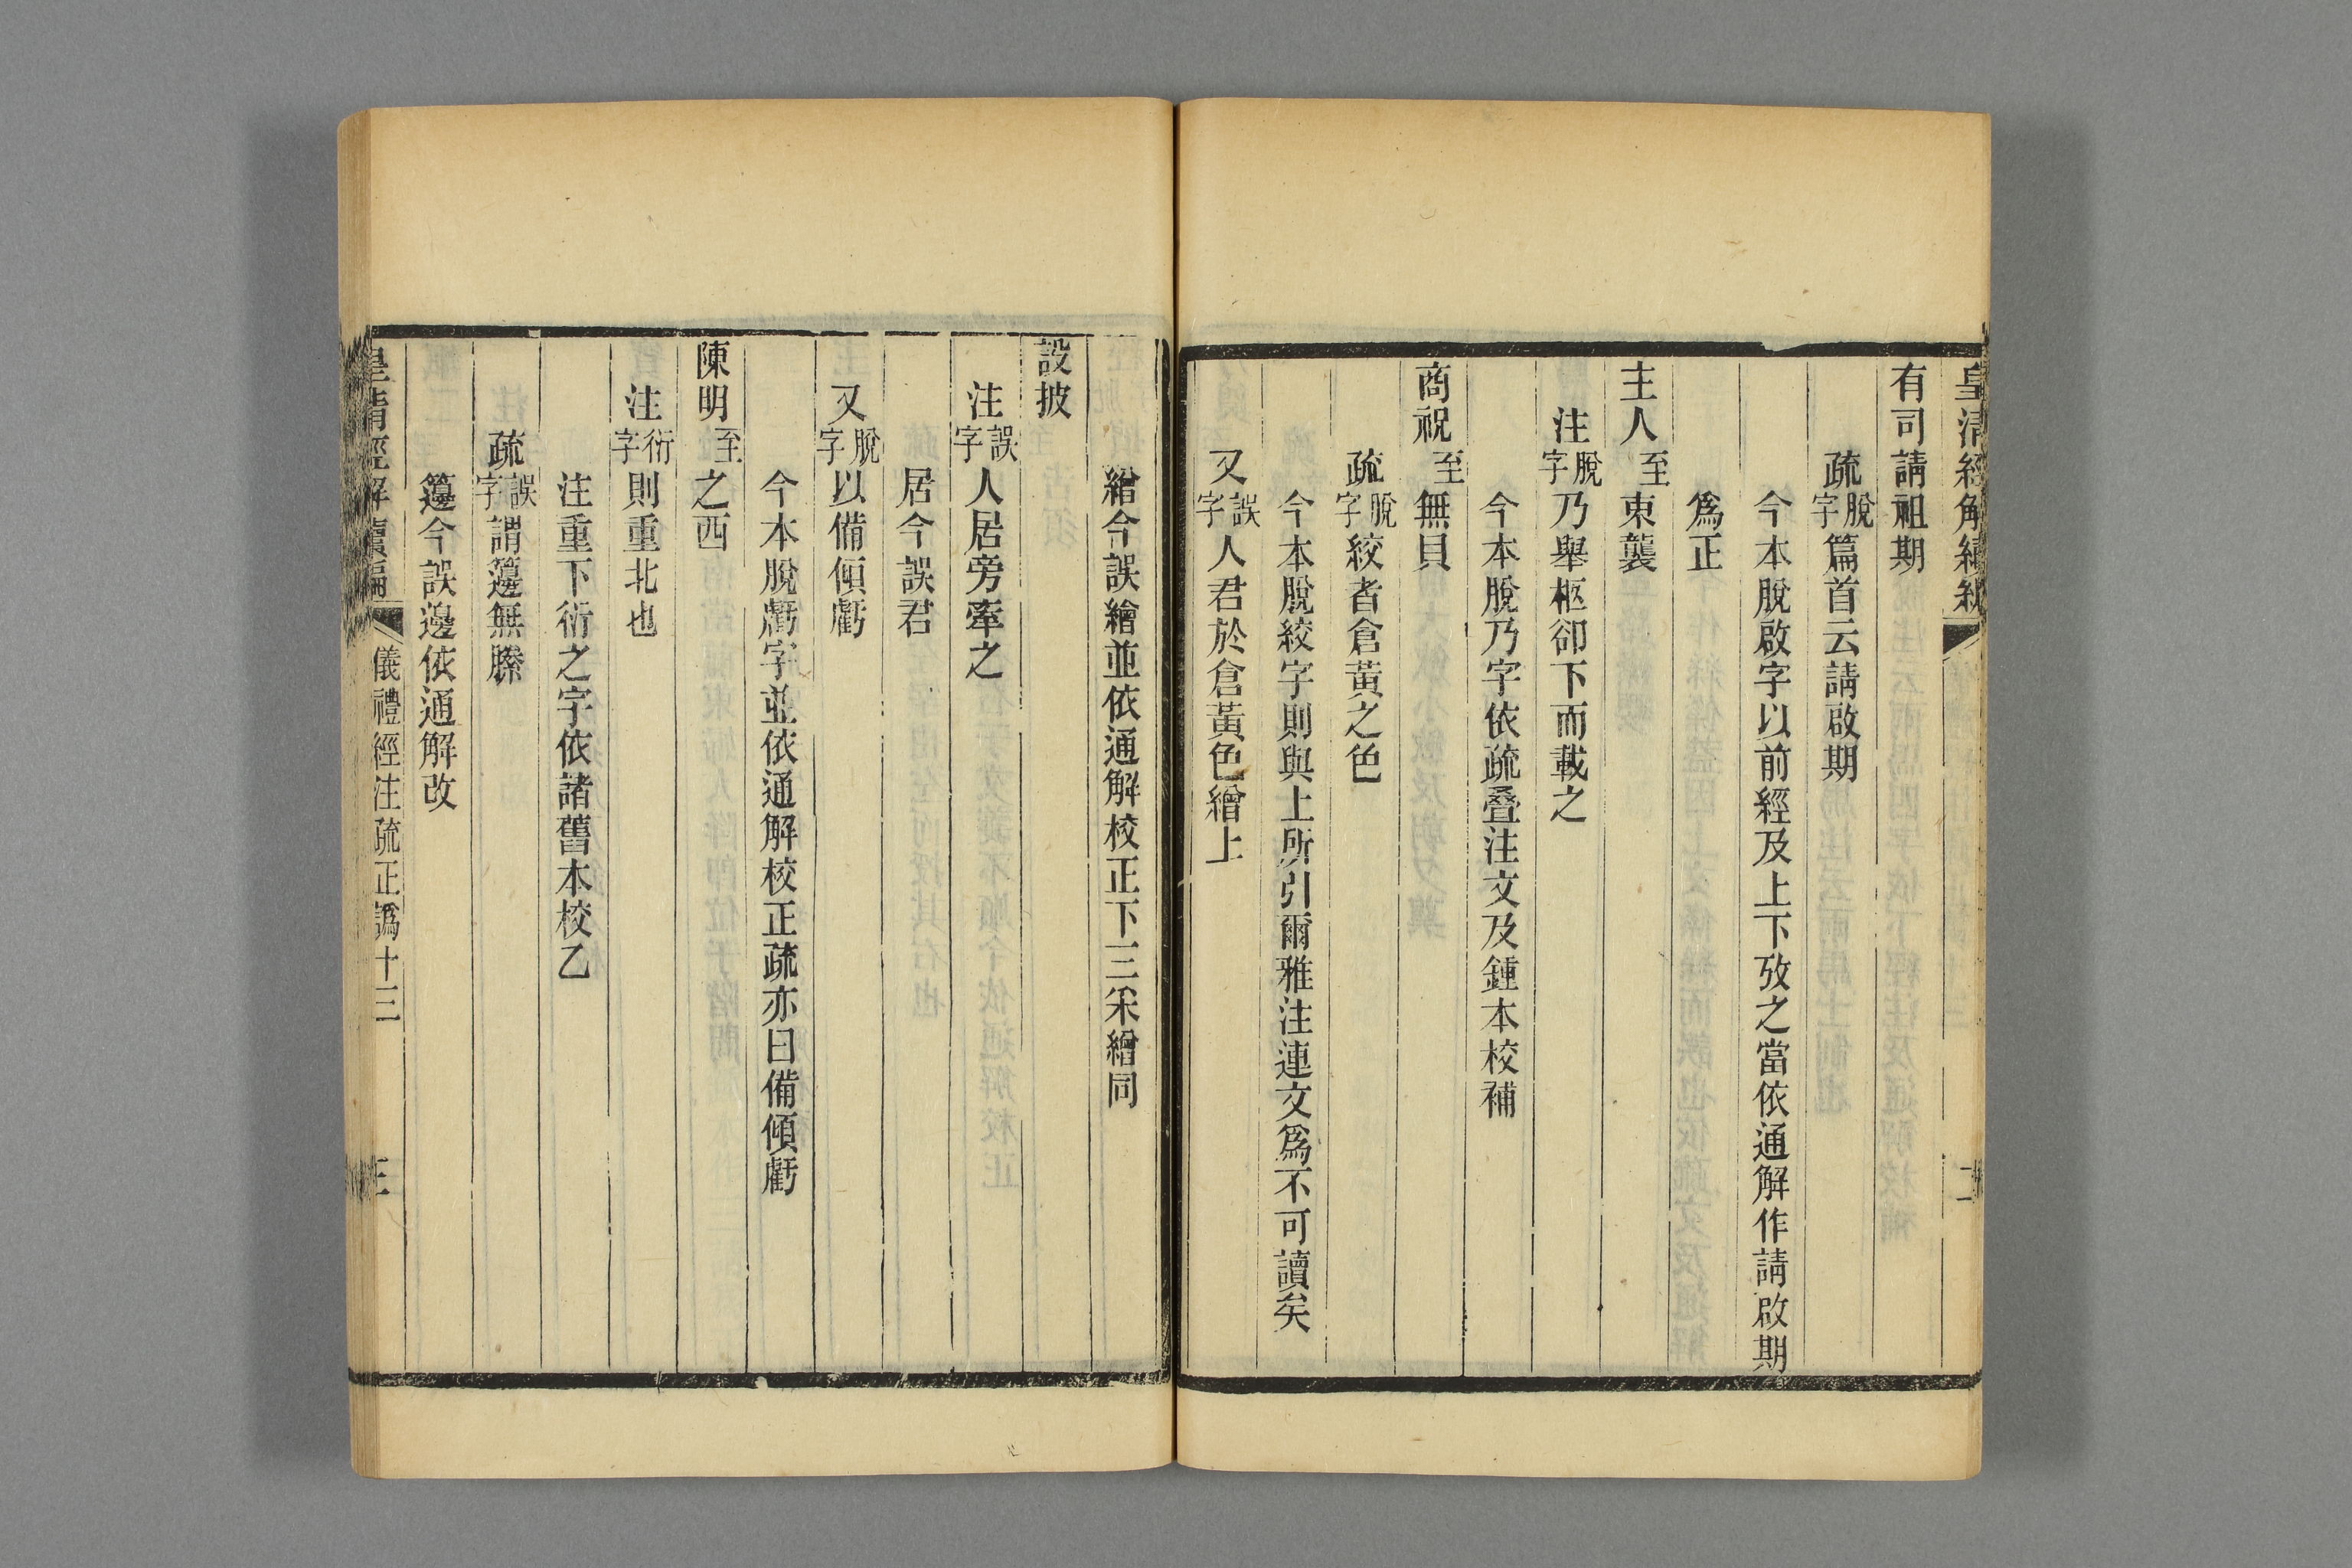 皇清經解續編
二
有司請祖期
疏脫字篇首云請啟期
今本脫啟字以前經及上下攷之當依通解作請啟期
爲正
主人至東襲
注脫字乃舉柩卻下而載之
今本脫乃字依疏疊注文及鍾本校補
商祝至無貝
疏脫字絞者倉黃之色
今本脫絞字則與上所引爾雅注連文爲不可讀矣
又誤字人君於倉黃色繒上
繒今誤繪並依通解校正下三采繒同
設披
注誤字人居旁牽之
居今誤君
又脫字以備傾虧
今本脫虧字並依通解校正疏亦曰備傾虧
陳明至之西
注衍字則重北也
注重下衍之字依諸舊本校乙
疏誤字謂籩無縢
籩今誤邊依通解改
皇清經解續編 儀禮經注疏正譌十三
三